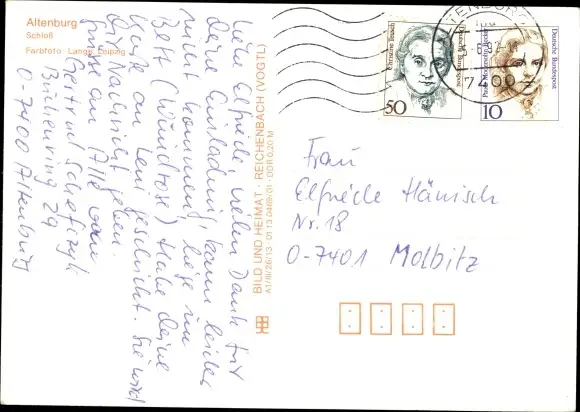 Altenburg
Schloß
Farbfoto: Lange, Leipzig
Liebe Elfriede, vielen Dank für
Deine Einladung, kann leider
nicht kommen, liege im
Bett (Windrose) Habe Deine
Karte an Leni geschickt. Sie wird
Dir Nachricht geben.
Grüße an Alle von
Gertrud
29
0-7400 Altenburg
BILD UND HEIMAT · REICHENBACH (VOGTL)
A1/III/26/13 01 13 0469/01 · DDR 0,20 M
ALTENBURG
7400
50
Deutsche Bundespost
10
Frau
Elfriede Hänisch
Nr. 18
0-7401 Molbitz